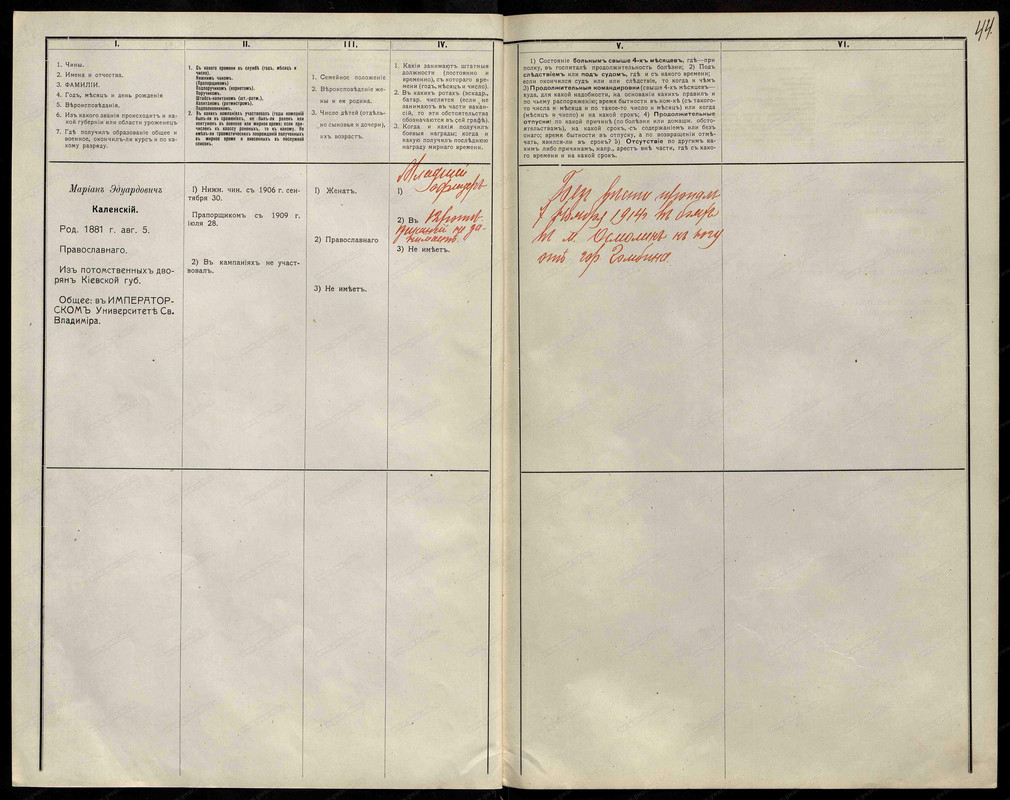 44
I.
1. Чины.
2. Имена и отчества.
3. ФАМИЛІИ.
4. Годъ, мѣсяцъ и день рожденія
5. Вѣроисповѣданія.
6. Изъ какого званія происходятъ и ка-
кой губерніи или области уроженецъ
7. Гдѣ получилъ образованіе общее и
военное, окончилъ-ли курсъ и по ка-
кому разряду.
II.
1. Съ какого времени въ службѣ (годъ, мѣсяцъ и
число).
Нижнимъ чиномъ.
(Прапорщикомъ).
Подпоручикомъ (корнетомъ).
Поручикомъ.
Штабсъ-капитаномъ (шт.-ротм.).
Капитаномъ (ротмистромъ).
Подполковникомъ.
III.
1. Семейное положеніе
2. Вѣроисповѣданіе же-
ны и ея родина.
3. Число дѣтей (отдѣль-
но сыновья и дочери),
ихъ возрастъ.
IV.
1. Какія занимаютъ штатныя
должности (постоянно и
временно), съ котораго вре-
мени (годъ, мѣсяцъ и число).
2. Въ какихъ ротахъ (эскадр.,
батар. числятся (если не
занимаютъ въ части вакан-
сій, то эти обстоятельства
обозначаются въ сей графѣ).
3. Когда и какія получилъ
боевыя награды; когда и
какую получилъ послѣднюю
награду мирнаго времени.
V.
1) Состояніе больнымъ свыше 4-хъ мѣсяцевъ, гдѣ—при
полку, въ госпиталѣ продолжительность болѣзни; 2) Подъ
слѣдствіемъ или подъ судомъ, гдѣ и съ какого времени;
если окончился судъ или или слѣдствіе, то когда и чѣмъ
3) Продолжительныя командировки (свыше 4-хъ мѣсяцевъ—
куда, для какой надобности, на основаніи какихъ правилъ и
по чьему распоряженію; время бытности въ ком-кѣ (съ такого-
то числа и мѣсяца и по такое-то число и мѣсяцъ) или когда
(мѣсяцъ и число) и на какой срокъ; 4) Продолжительные
отпуски: по какой причинѣ (по болѣзни или домашн. обсто-
ятельствамъ), на какой срокъ, съ содержаніемъ или безъ
онаго; время бытности въ отпуску, а по возвращеніи отмѣ-
чать, явился-ли въ срокъ? 5) Отсутствіе по другимъ ка-
кимъ либо причинамъ, напр., арестъ внѣ части, гдѣ съ како-
го времени и на какой срокъ.
VI.
Маріанъ Эдуардовичъ
Каленскій.
Род. 1881 г. авг. 5.
Православнаго.
Изъ потомственныхъ дво-
рянъ Кіевской губ.
Общее: въ ИМПЕРАТОР-
СКОМЪ Университетѣ Св.
Владиміра.
1) Нижн. чин. съ 1906 г. сен-
тября 30.
Прапорщикомъ съ 1909 г.
іюля 28.
2) Въ кампаніяхъ не участ-
вовалъ.
1) Женатъ.
2) Православнаго
3) Не имѣетъ.
Младшій
1) офицеръ
2) Въ 12 ротѣ
вакансій не за-
нимаетъ.
3) Не имѣетъ.
Безъ вѣсти пропалъ
7 ноября 1914 г. въ бою
у м. Осмолинъ къ югу
отъ гор Гомбина